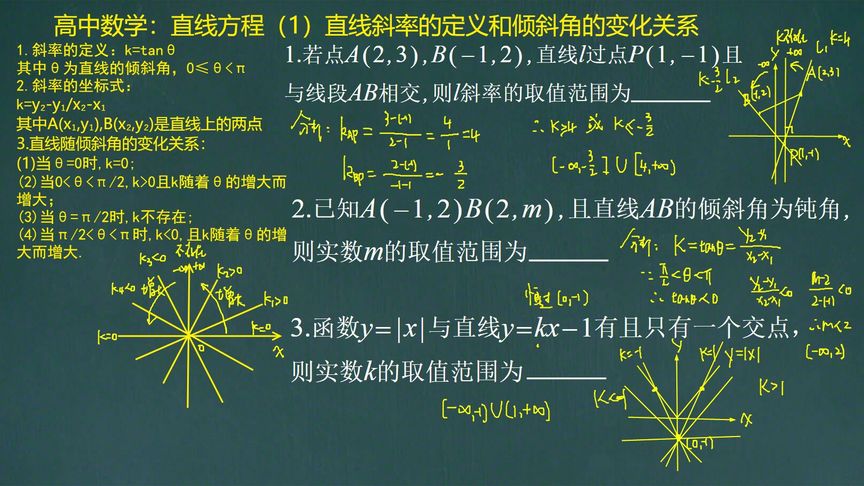 高中数学：直线方程（1）直线斜率的定义和倾斜角的变化关系
1.斜率的定义：k=tanθ
其中θ为直线的倾斜角，0≤θ<π
2.斜率的坐标式：
k=y₂-y₁/x₂-x₁
其中A(x₁,y₁),B(x₂,y₂)是直线上的两点
3.直线随倾斜角的变化关系：
(1)当θ=0时,k=0;
(2)当0<θ<π/2,k>0且k随着θ的增大而
增大；
(3)当θ=π/2时,k不存在;
(4)当π/2<θ<π时,k<0,且k随着θ的增
大而增大.
k₃<0
不存在
-∞ +∞
k₂>0
k₄<0
增大
增大
k₁>0
k=0
k=0
0
x
1.若点A(2,3),B(-1,2),直线l过点P(1,-1)且
与线段AB相交,则l斜率的取值范围为
分析: k_AP = 3-(-1)/2-1 = 4/1 =4
k_BP = 2-(-1)/-1-1 = -3/2
∴ k≥4 或 k≤-3/2
(-∞,-3/2] ∪ [4,+∞)
k不存在
k=4
-∞
+∞
L₁
k=-3/2
L₂
A(2,3)
B(-1,2)
1
x
P(1,-1)
2.已知A(-1,2)B(2,m),且直线AB的倾斜角为钝角,
则实数m的取值范围为
分析: k=tanθ= y₂-y₁/x₂-x₁
∵ π/2<θ<π
∴ tanθ<0
y₂-y₁/x₂-x₁<0
m-2/2-(-1)<0
∴m<2
(-∞,2)
恒过(0,-1)
3.函数y=|x|与直线y=kx-1有且只有一个交点,
则实数k的取值范围为
(-∞,-1)∪(1,+∞)
k=-1
y
k=1
y=|x|
k<-1
k>1
x
(0,-1)